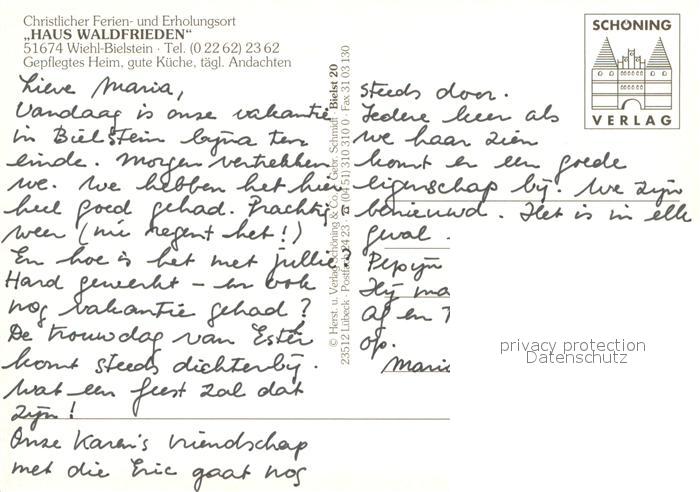 Christlicher Ferien- und Erholungsort
„HAUS WALDFRIEDEN“
51674 Wiehl-Bielstein · Tel. (0 22 62) 23 62
Gepflegtes Heim, gute Küche, tägl. Andachten
Lieve Maria,
Vandaag is onze vakantie
in Bielstein bijna ten
einde. Morgen vertrekken
we. We hebben het hier
heel goed gehad. Prachtig
weer (nu regent het!)
En hoe is het met jullie?
Hard gewerkt – en ook
nog vakantie gehad?
De trouwdag van Esther
komt steeds dichterbij.
Wat een feest zal dat
zijn!
Onze Karen's vriendschap
met die Eric gaat nog
© Herst. u. Verlag Schöning & Co. + Gebr. Schmidt · Bielst 20
23512 Lübeck · Postfach 24 23 · ☎ (04 51) 310 310 0 · Fax 31 03 130
steeds door.
Iedere keer als
we haar zien
komt er een goede
eigenschap bij. We zijn
benieuwd. Het is in elk
geval
Pepijn
Hij ma
Af en T
op.
Maria
SCHÖNING
VERLAG
privacy protection
Datenschutz